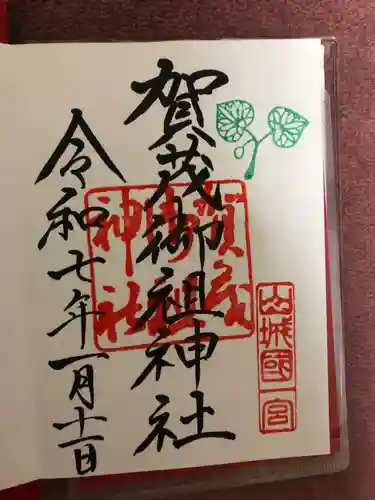 賀茂御祖神社
令和七年一月十一日
賀茂御祖神社
山城國一宮